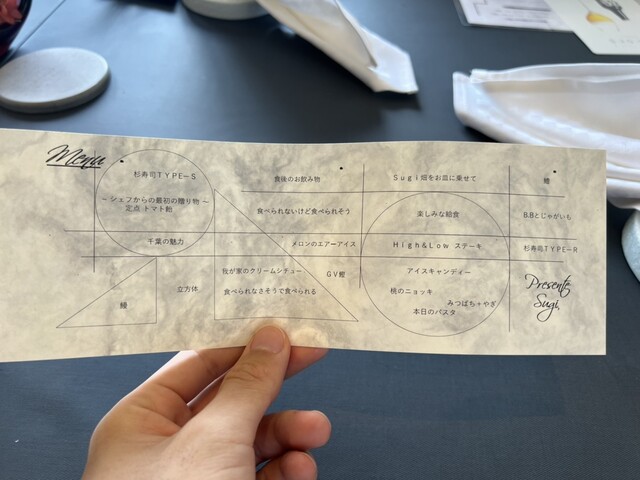 Menu
杉寿司TYPE-S
~シェフからの最初の贈り物~
定点 トマト飴
千葉の魅力
鰻
立方体
食後のお飲み物
食べられないけど食べられそう
メロンのエアーアイス
我が家のクリームシチュー
GV鰹
食べられなさそうで食べられる
Sugi 畑をお皿に乗せて
楽しみな給食
High&Low ステーキ
アイスキャンディー
桃のニョッキ
みつばち+やぎ
本日のパスタ
B.Bとじゃがいも
杉寿司TYPE-R
Presente
Sugi